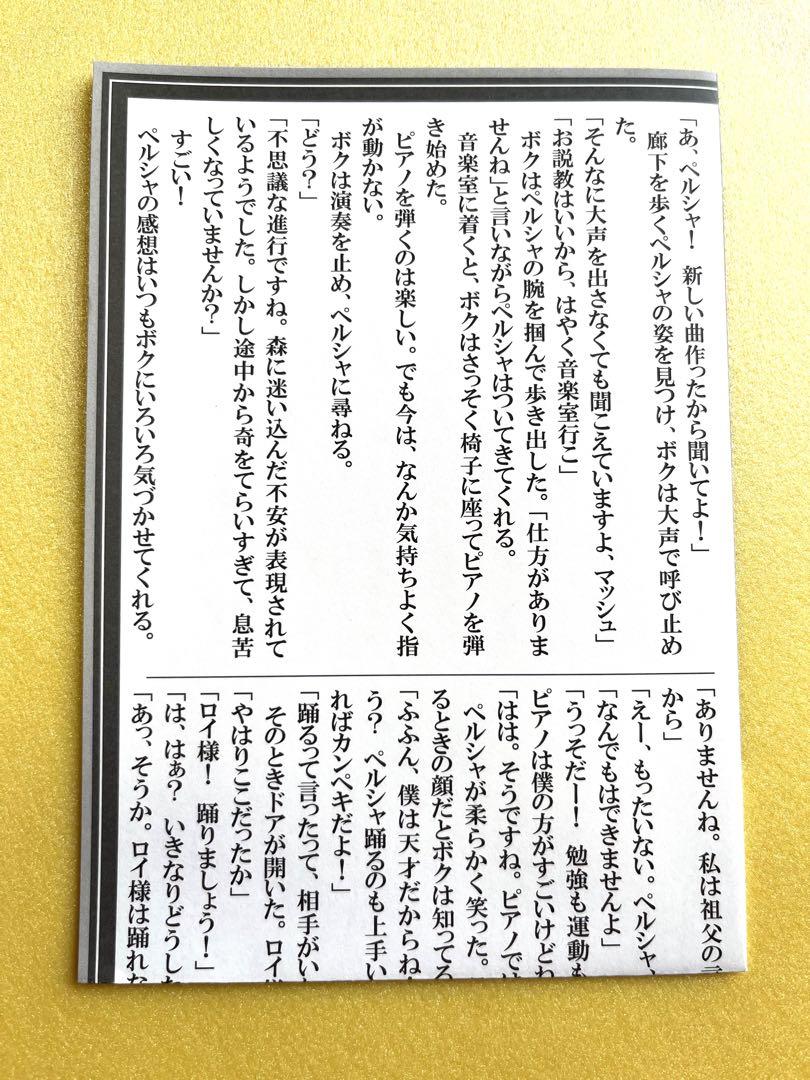 「あ、ペルシャ！　新しい曲作ったから聞いてよ！」
　廊下を歩くペルシャの姿を見つけ、ボクは大声で呼び止め
た。
「そんなに大声を出さなくても聞こえていますよ、マッシュ」
「お説教はいいから、はやく音楽室行こ」
　ボクはペルシャの腕を掴んで歩き出した。「仕方がありま
せんね」と言いながらペルシャはついてきてくれる。
　音楽室に着くと、ボクはさっそく椅子に座ってピアノを弾
き始めた。
　ピアノを弾くのは楽しい。でも今は、なんか気持ちよく指
が動かない。
　ボクは演奏を止め、ペルシャに尋ねる。
「どう？」
「不思議な進行ですね。森に迷い込んだ不安が表現されて
いるようでした。しかし途中から奇をてらいすぎて、息苦
しくなっていませんか？」
　すごい！
　ペルシャの感想はいつもボクにいろいろ気づかせてくれる。
「ありませんね。私は祖父の
から」
「えー、もったいない。ペルシャ、
「なんでもはできませんよ」
「うっそだー！　勉強も運動も
ピアノは僕の方がすごいけどね
「はは。そうですね。ピアノでは
　ペルシャが柔らかく笑った。
るときの顔だとボクは知ってる
「ふふん、僕は天才だからね
う？　ペルシャ踊るのも上手い
ればカンペキだよ！」
「踊るって言ったって、相手がい
　そのときドアが開いた。ロイ
「やはりここだったか」
「ロイ様！　踊りましょう！」
「は、はぁ？　いきなりどうした
「あっ、そうか。ロイ様は踊れな